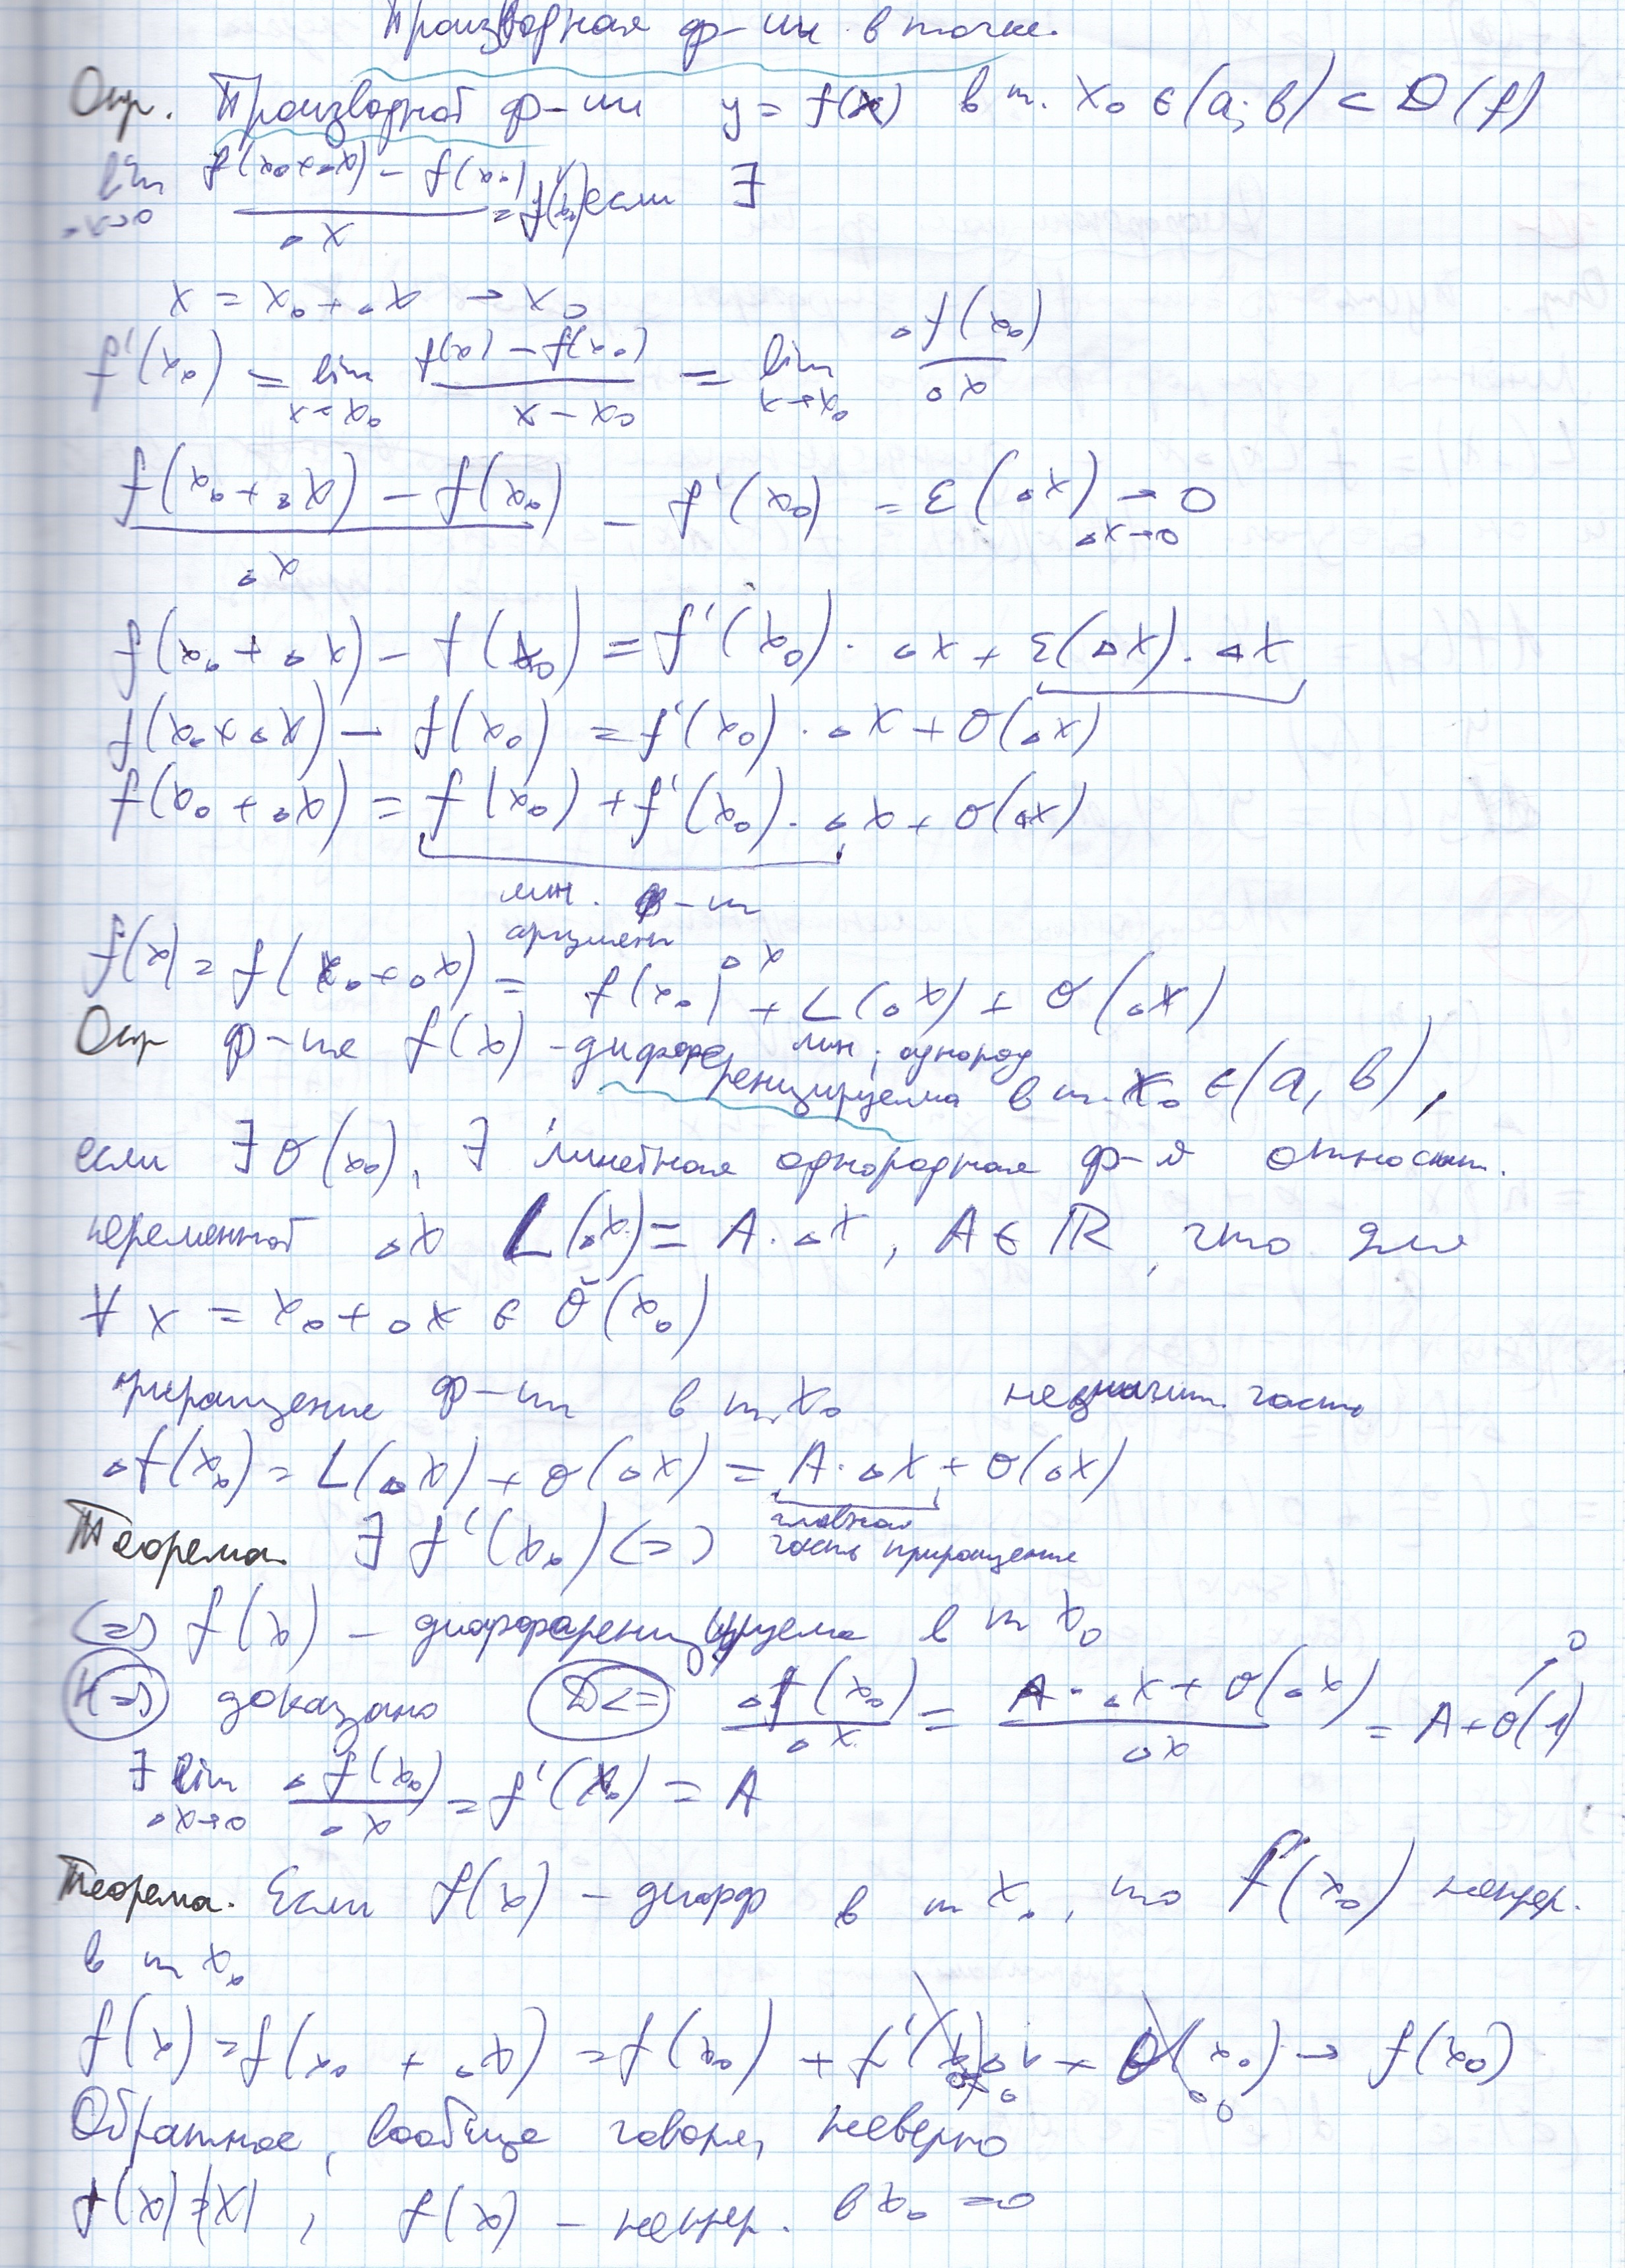 Производная ф-ии в точке.
Опр. Производной ф-ии y = f(x) в т. x₀ ∈ (a; b) ⊂ D(f)
lim_{Δx→0} (f(x₀+Δx) - f(x₀))/Δx = f'(x₀) если ∃
x = x₀ + Δx → x₀
f'(x₀) = lim_{x→x₀} (f(x) - f(x₀))/(x - x₀) = lim_{x→x₀} Δf(x₀)/Δx
(f(x₀ + Δx) - f(x₀))/Δx - f'(x₀) = ε(Δx) → 0 Δx→0
f(x₀ + Δx) - f(x₀) = f'(x₀) · Δx + ε(Δx) · Δx
f(x₀+Δx) - f(x₀) = f'(x₀) · Δx + o(Δx)
f(x₀ + Δx) = f(x₀) + f'(x₀) · Δx + o(Δx)
лин. ф-ия
аргумент Δx
f(x) = f(x₀ + Δx) = f(x₀) + L(Δx) + o(Δx)
лин, однород
Опр ф-ия f(x) - дифференцируема в т. x₀ ∈ (a, b),
если ∃ O(x₀), ∃ линейная однородная ф-я относит.
переменной Δx L(Δx) = A · Δx, A ∈ ℝ, что для
∀ x = x₀ + Δx ∈ Ŏ(x₀)
приращение ф-ии в т. x₀ незначит. часть
Δf(x₀) = L(Δx) + o(Δx) = A · Δx + o(Δx)
главная
часть приращения
Теорема. ∃ f'(x₀) <=>
<=> f(x) - дифференцируема в т x₀
H=> доказано D<= Δf(x₀)/Δx = (A · Δx + o(Δx))/Δx = A + o(1) → 0
∃ lim_{Δx→0} Δf(x₀)/Δx = f'(x₀) = A
Теорема. Если f(x) - дифф в т x₀, то f(x₀) непрер.
в т x₀
f(x) = f(x₀ + Δx) = f(x₀) + f'(x₀)Δx + o(x₀) → f(x₀)
Обратное, вообще говоря, неверно
f(x) = |x|, f(x) - непрер. в x₀ = 0